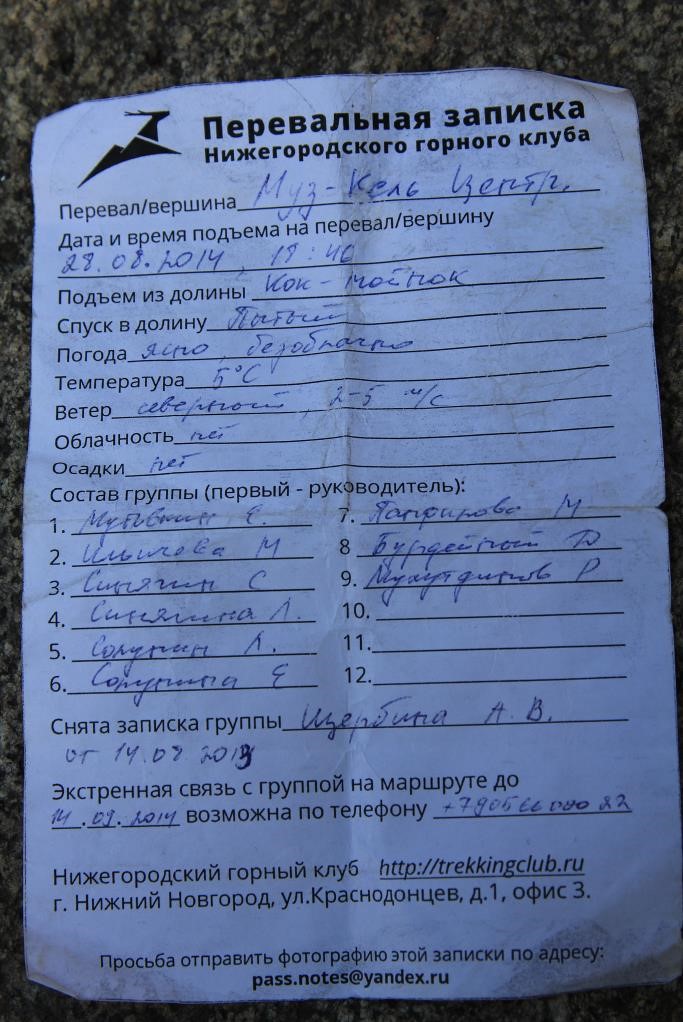 Перевальная записка
Нижегородского горного клуба
Перевал/вершина Муз-Кель Центр.
Дата и время подъема на перевал/вершину
28.08.2014, 18:40
Подъем из долины Кок-мойнок
Спуск в долину Пытый
Погода ясно, безоблачно
Температура 5°С
Ветер северный, 2-5 м/с
Облачность нет
Осадки нет
Состав группы (первый - руководитель):
1. Мутовкин Е. 7. Панфилова М
2. Ильичева М 8 Бурдейный Д
3. Синягин С 9. Мухутдинов Р
4. Синягина Л. 10.
5. Сорунин Л. 11.
6. Сорунина Е 12.
Снята записка группы Щербина А.В.
от 14.08.2013
Экстренная связь с группой на маршруте до
14.09.2014 возможна по телефону
Нижегородский горный клуб http://trekkingclub.ru
г. Нижний Новгород, ул.Краснодонцев, д.1, офис 3.
Просьба отправить фотографию этой записки по адресу:
pass.notes@yandex.ru